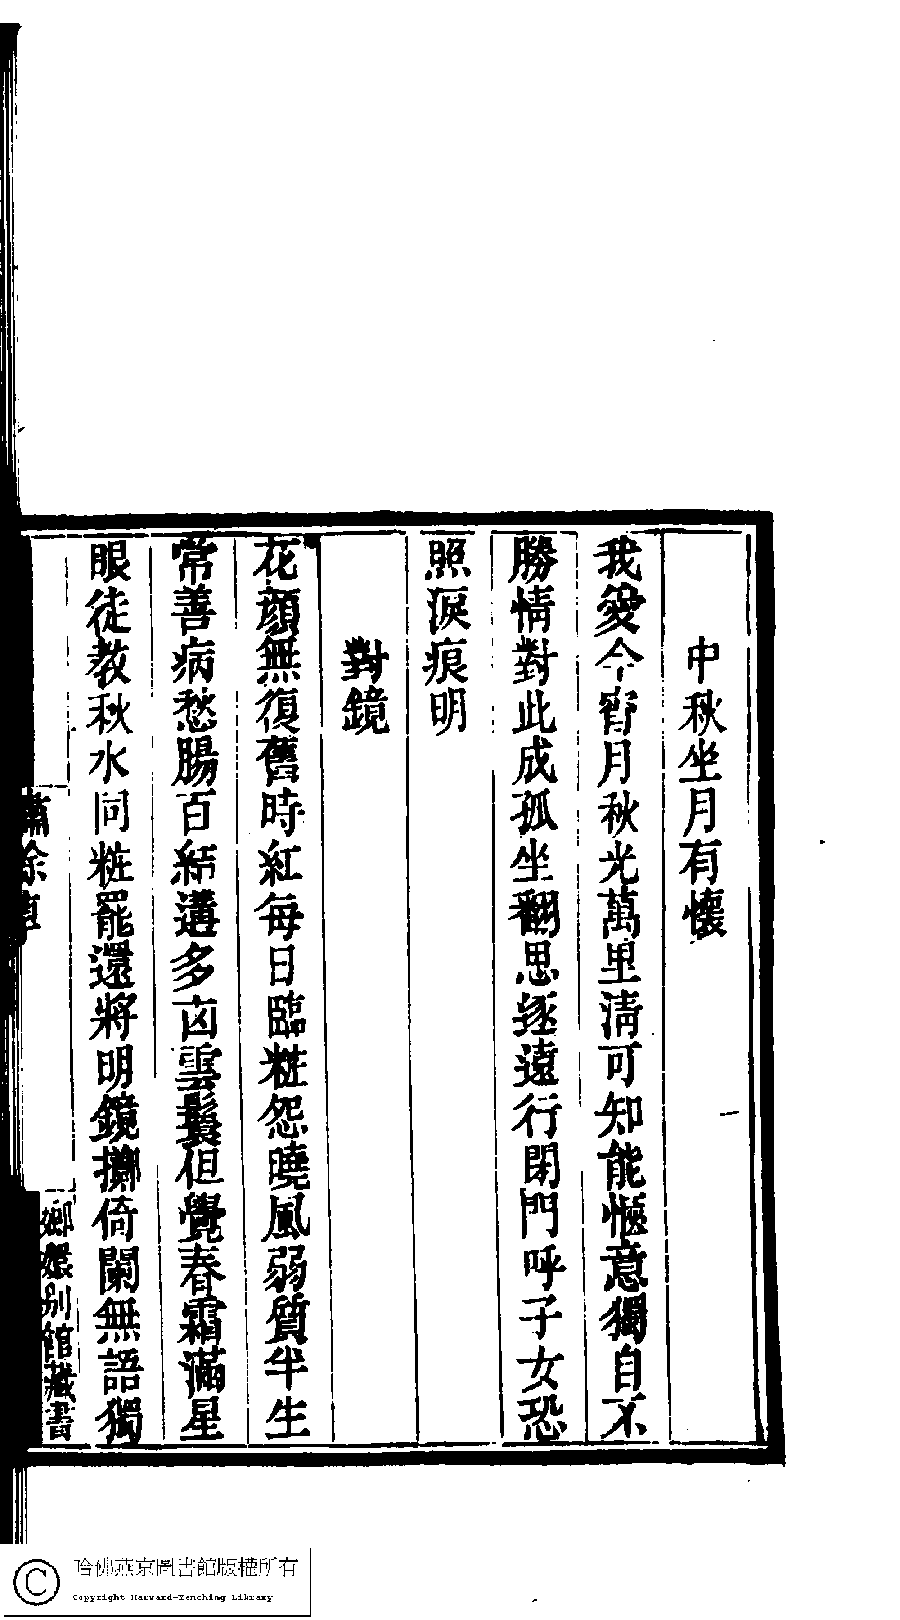 中秋坐月有懷
我愛今宵月秋光萬里淸可知能愜意獨自不
勝情對此成孤坐翻思逐遠行閉門呼子女恐
照淚痕明
對鏡
花顔無復舊時紅每日臨粧怨曉風弱質半生
常善病愁腸百結遘多凶雲鬟但覺春霜滿星
眼徒教秋水同粧罷還將明鏡擲倚闌無語獨
嫏嬛別館藏書
哈佛燕京圖書館版權所有
Copyright Harvard-Yenching Library